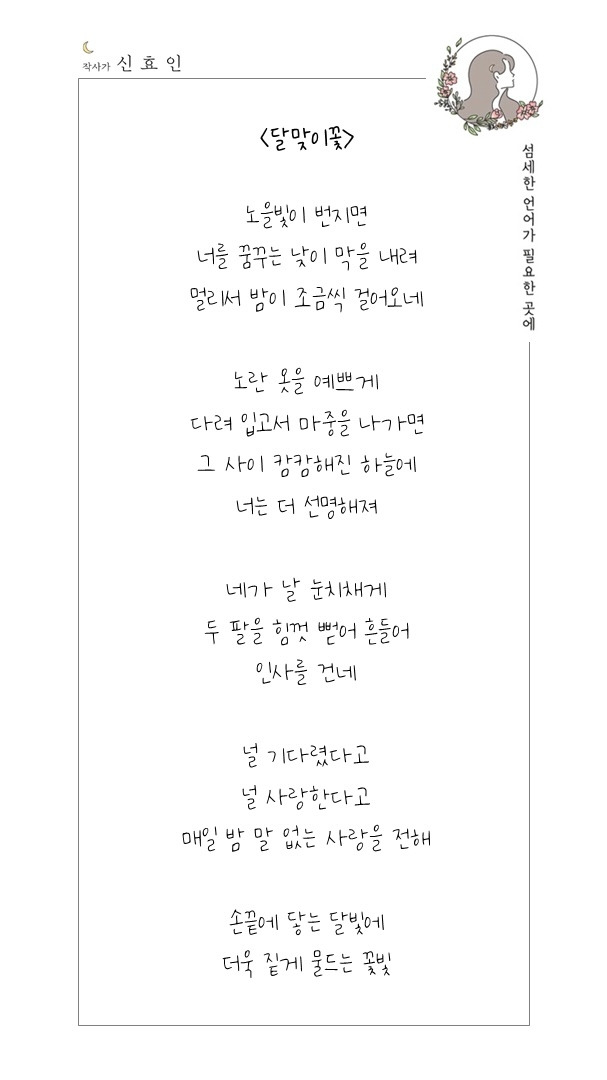 작사가 신효인
섬세한 언어가 필요한 곳에
<달맞이꽃>
노을빛이 번지면
너를 꿈꾸는 낮이 막을 내려
멀리서 밤이 조금씩 걸어오네
노란 옷을 예쁘게
다려 입고서 마중을 나가면
그 사이 캄캄해진 하늘에
너는 더 선명해져
네가 날 눈치채게
두 팔을 힘껏 뻗어 흔들어
인사를 건네
널 기다렸다고
널 사랑한다고
매일 밤 말 없는 사랑을 전해
손끝에 닿는 달빛에
더욱 짙게 물드는 꽃빛